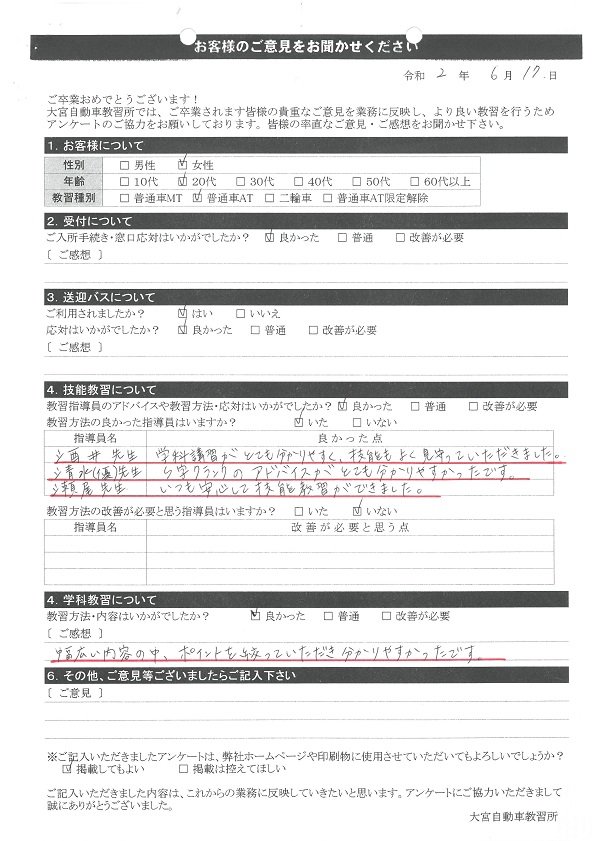 お客様のご意見をお聞かせください
令和 2 年 6 月 17 日
ご卒業おめでとうございます！
大宮自動車教習所では、ご卒業されます皆様の貴重なご意見を業務に反映し、より良い教習を行うため
アンケートのご協力をお願いしております。皆様の率直なご意見・ご感想をお聞かせ下さい。
1. お客様について
性別 □ 男性 ☑ 女性
年齢 □ 10代 ☑ 20代 □ 30代 □ 40代 □ 50代 □ 60代以上
教習種別 □ 普通車MT ☑ 普通車AT □ 二輪車 □ 普通車AT限定解除
2. 受付について
ご入所手続き・窓口応対はいかがでしたか？ ☑ 良かった □ 普通 □ 改善が必要
〔 ご感想 〕
3. 送迎バスについて
ご利用されましたか？ ☑ はい □ いいえ
応対はいかがでしたか？ ☑ 良かった □ 普通 □ 改善が必要
〔 ご感想 〕
4. 技能教習について
教習指導員のアドバイスや教習方法・応対はいかがでしたか？ ☑ 良かった □ 普通 □ 改善が必要
教習方法の良かった指導員はいますか？ ☑ いた □ いない
指導員名 良かった点
酒井 先生 学科講習がとても分かりやすく、技能もよく見守っていただきました。
清水(優)先生 S字クランクのアドバイスがとても分かりやすかったです。
瀬屋 先生 いつも安心して技能教習ができました。
教習方法の改善が必要と思う指導員はいますか？ □ いた ☑ いない
指導員名 改善が必要と思う点
4. 学科教習について
教習方法・内容はいかがでしたか？ ☑ 良かった □ 普通 □ 改善が必要
〔 ご感想 〕
幅広い内容の中、ポイントを絞っていただき分かりやすかったです。
6. その他、ご意見等ございましたらご記入下さい
〔 ご意見 〕
※ご記入いただきましたアンケートは、弊社ホームページや印刷物に使用させていただいてもよろしいでしょうか？
☑ 掲載してもよい □ 掲載は控えてほしい
ご記入いただきました内容は、これからの業務に反映していきたいと思います。アンケートにご協力いただきまして
誠にありがとうございました。
大宮自動車教習所